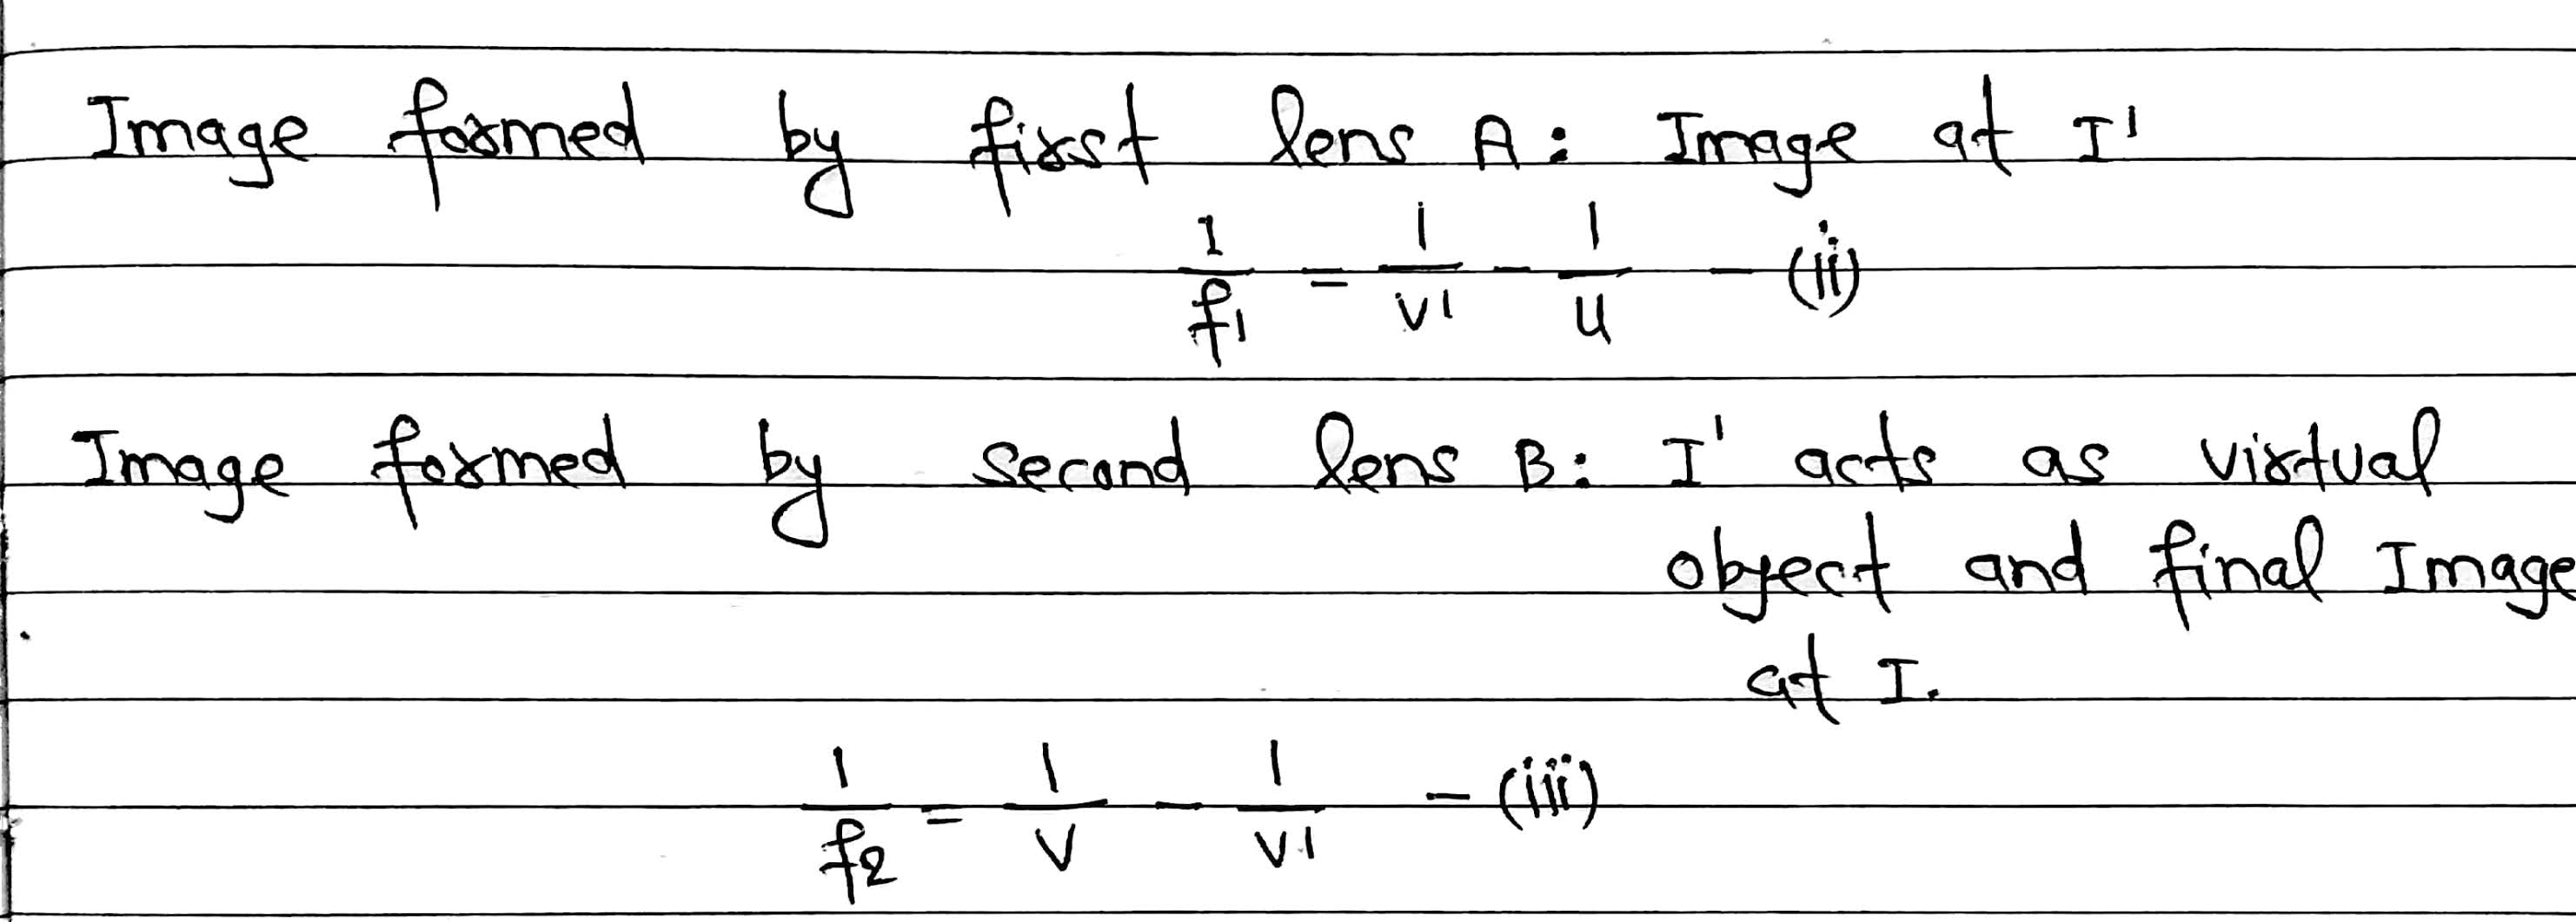 Image formed by first lens A: Image at I'
1/f1 = 1/v' - 1/u - (ii)
Image formed by second lens B: I' acts as virtual
object and final Image
at I.
1/f2 = 1/v - 1/v' - (iii)